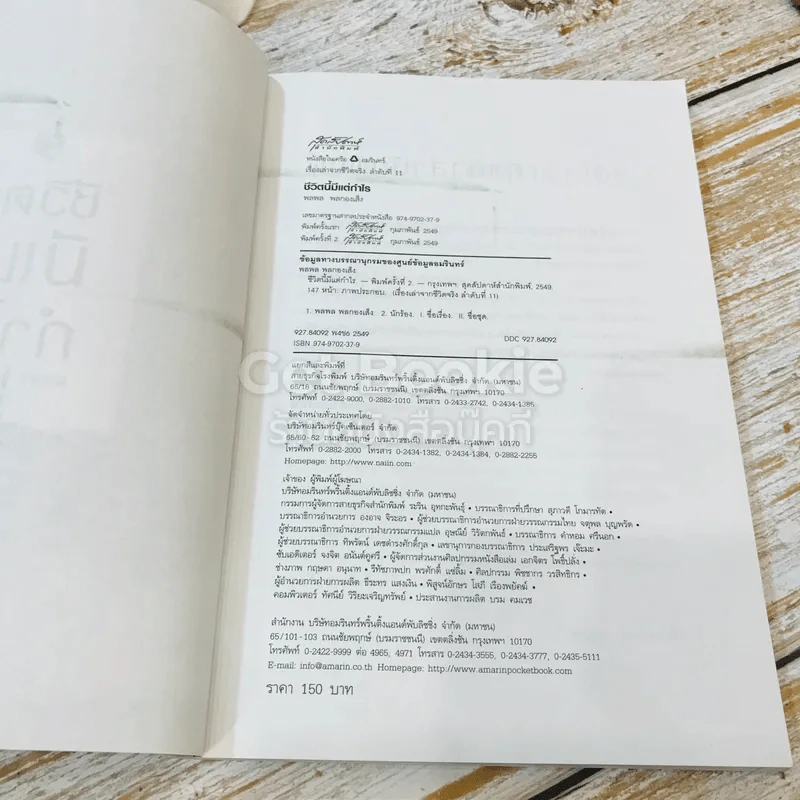 สำนักพิมพ์
หนังสือในเครือ อมรินทร์
เรื่องเล่าจากชีวิตจริง ลำดับที่ 11
ชีวิตนี้มีแต่กำไร
พลพล พลกองเส็ง
เลขมาตรฐานสากลประจำหนังสือ 974-9702-37-9
พิมพ์ครั้งแรก กุมภาพันธ์ 2549
พิมพ์ครั้งที่ 2 กุมภาพันธ์ 2549
ข้อมูลทางบรรณานุกรมของศูนย์ข้อมูลอมรินทร์
พลพล พลกองเส็ง.
ชีวิตนี้มีแต่กำไร. — พิมพ์ครั้งที่ 2. — กรุงเทพฯ: สุดสัปดาห์สำนักพิมพ์, 2549.
147 หน้า: ภาพประกอบ. (เรื่องเล่าจากชีวิตจริง ลำดับที่ 11)
1. พลพล พลกองเส็ง. 2. นักร้อง. I. ชื่อเรื่อง. II. ชื่อชุด.
927.84092 พ4ช6 2549 DDC 927.84092
ISBN 974-9702-37-9
Get Bookie
ร้านหนังสือบุ๊คกี้
แยกสีและพิมพ์ที่
สายธุรกิจโรงพิมพ์ บริษัทอมรินทร์พริ้นติ้งแอนด์พับลิชชิ่ง จำกัด (มหาชน)
65/16 ถนนชัยพฤกษ์ (บรมราชชนนี) เขตตลิ่งชัน กรุงเทพฯ 10170
โทรศัพท์ 0-2422-9000, 0-2882-1010 โทรสาร 0-2433-2742, 0-2434-1385
จัดจำหน่ายทั่วประเทศโดย
บริษัทอมรินทร์บุ๊คเซ็นเตอร์ จำกัด
65/60-62 ถนนชัยพฤกษ์ (บรมราชชนนี) เขตตลิ่งชัน กรุงเทพฯ 10170
โทรศัพท์ 0-2882-2000 โทรสาร 0-2434-1382, 0-2434-1384, 0-2882-2255
Homepage: http://www.naiin.com
เจ้าของ ผู้พิมพ์ผู้โฆษณา
บริษัทอมรินทร์พริ้นติ้งแอนด์พับลิชชิ่ง จำกัด (มหาชน)
กรรมการผู้จัดการสายธุรกิจสำนักพิมพ์ ระริน อุทกะพันธุ์ • บรรณาธิการที่ปรึกษา สุภาวดี โกมารทัต •
บรรณาธิการอำนวยการ องอาจ จิระอร • ผู้ช่วยบรรณาธิการอำนวยการฝ่ายวรรณกรรมไทย จตุพล บุญพรัด •
ผู้ช่วยบรรณาธิการอำนวยการฝ่ายวรรณกรรมแปล อุษณีย์ วิรัตกพันธ์ • บรรณาธิการ คำหอม ศรีนอก •
ผู้ช่วยบรรณาธิการ ทิพรัตน์ เดชดำรงศักดิ์กุล • เลขานุการกองบรรณาธิการ ประเสริฐพร เจ๊ะมะ •
ซับเอดิเตอร์ จงจิต อนันต์คูศรี • ผู้จัดการส่วนงานศิลปกรรมหนังสือเล่ม เอกจิตร โพธิ์ปลั่ง •
ช่างภาพ กฤษดา อนุนาท • รีทัชภาพปก พรศักดิ์ แซ่ลิ้ม • ศิลปกรรม พิชชากร วรสิทธิกร •
ผู้อำนวยการฝ่ายการผลิต ธีระทร แสงเงิน • พิสูจน์อักษร โสภี เรืองพยัคฆ์ •
คอมพิวเตอร์ ทัศนีย์ วิริยะเจริญทรัพย์ • ประสานงานการผลิต บรม คมเวช
สำนักงาน บริษัทอมรินทร์พริ้นติ้งแอนด์พับลิชชิ่ง จำกัด (มหาชน)
65/101-103 ถนนชัยพฤกษ์ (บรมราชชนนี) เขตตลิ่งชัน กรุงเทพฯ 10170
โทรศัพท์ 0-2422-9999 ต่อ 4965, 4971 โทรสาร 0-2434-3555, 0-2434-3777, 0-2435-5111
E-mail: info@amarin.co.th Homepage: http://www.amarinpocketbook.com
ราคา 150 บาท